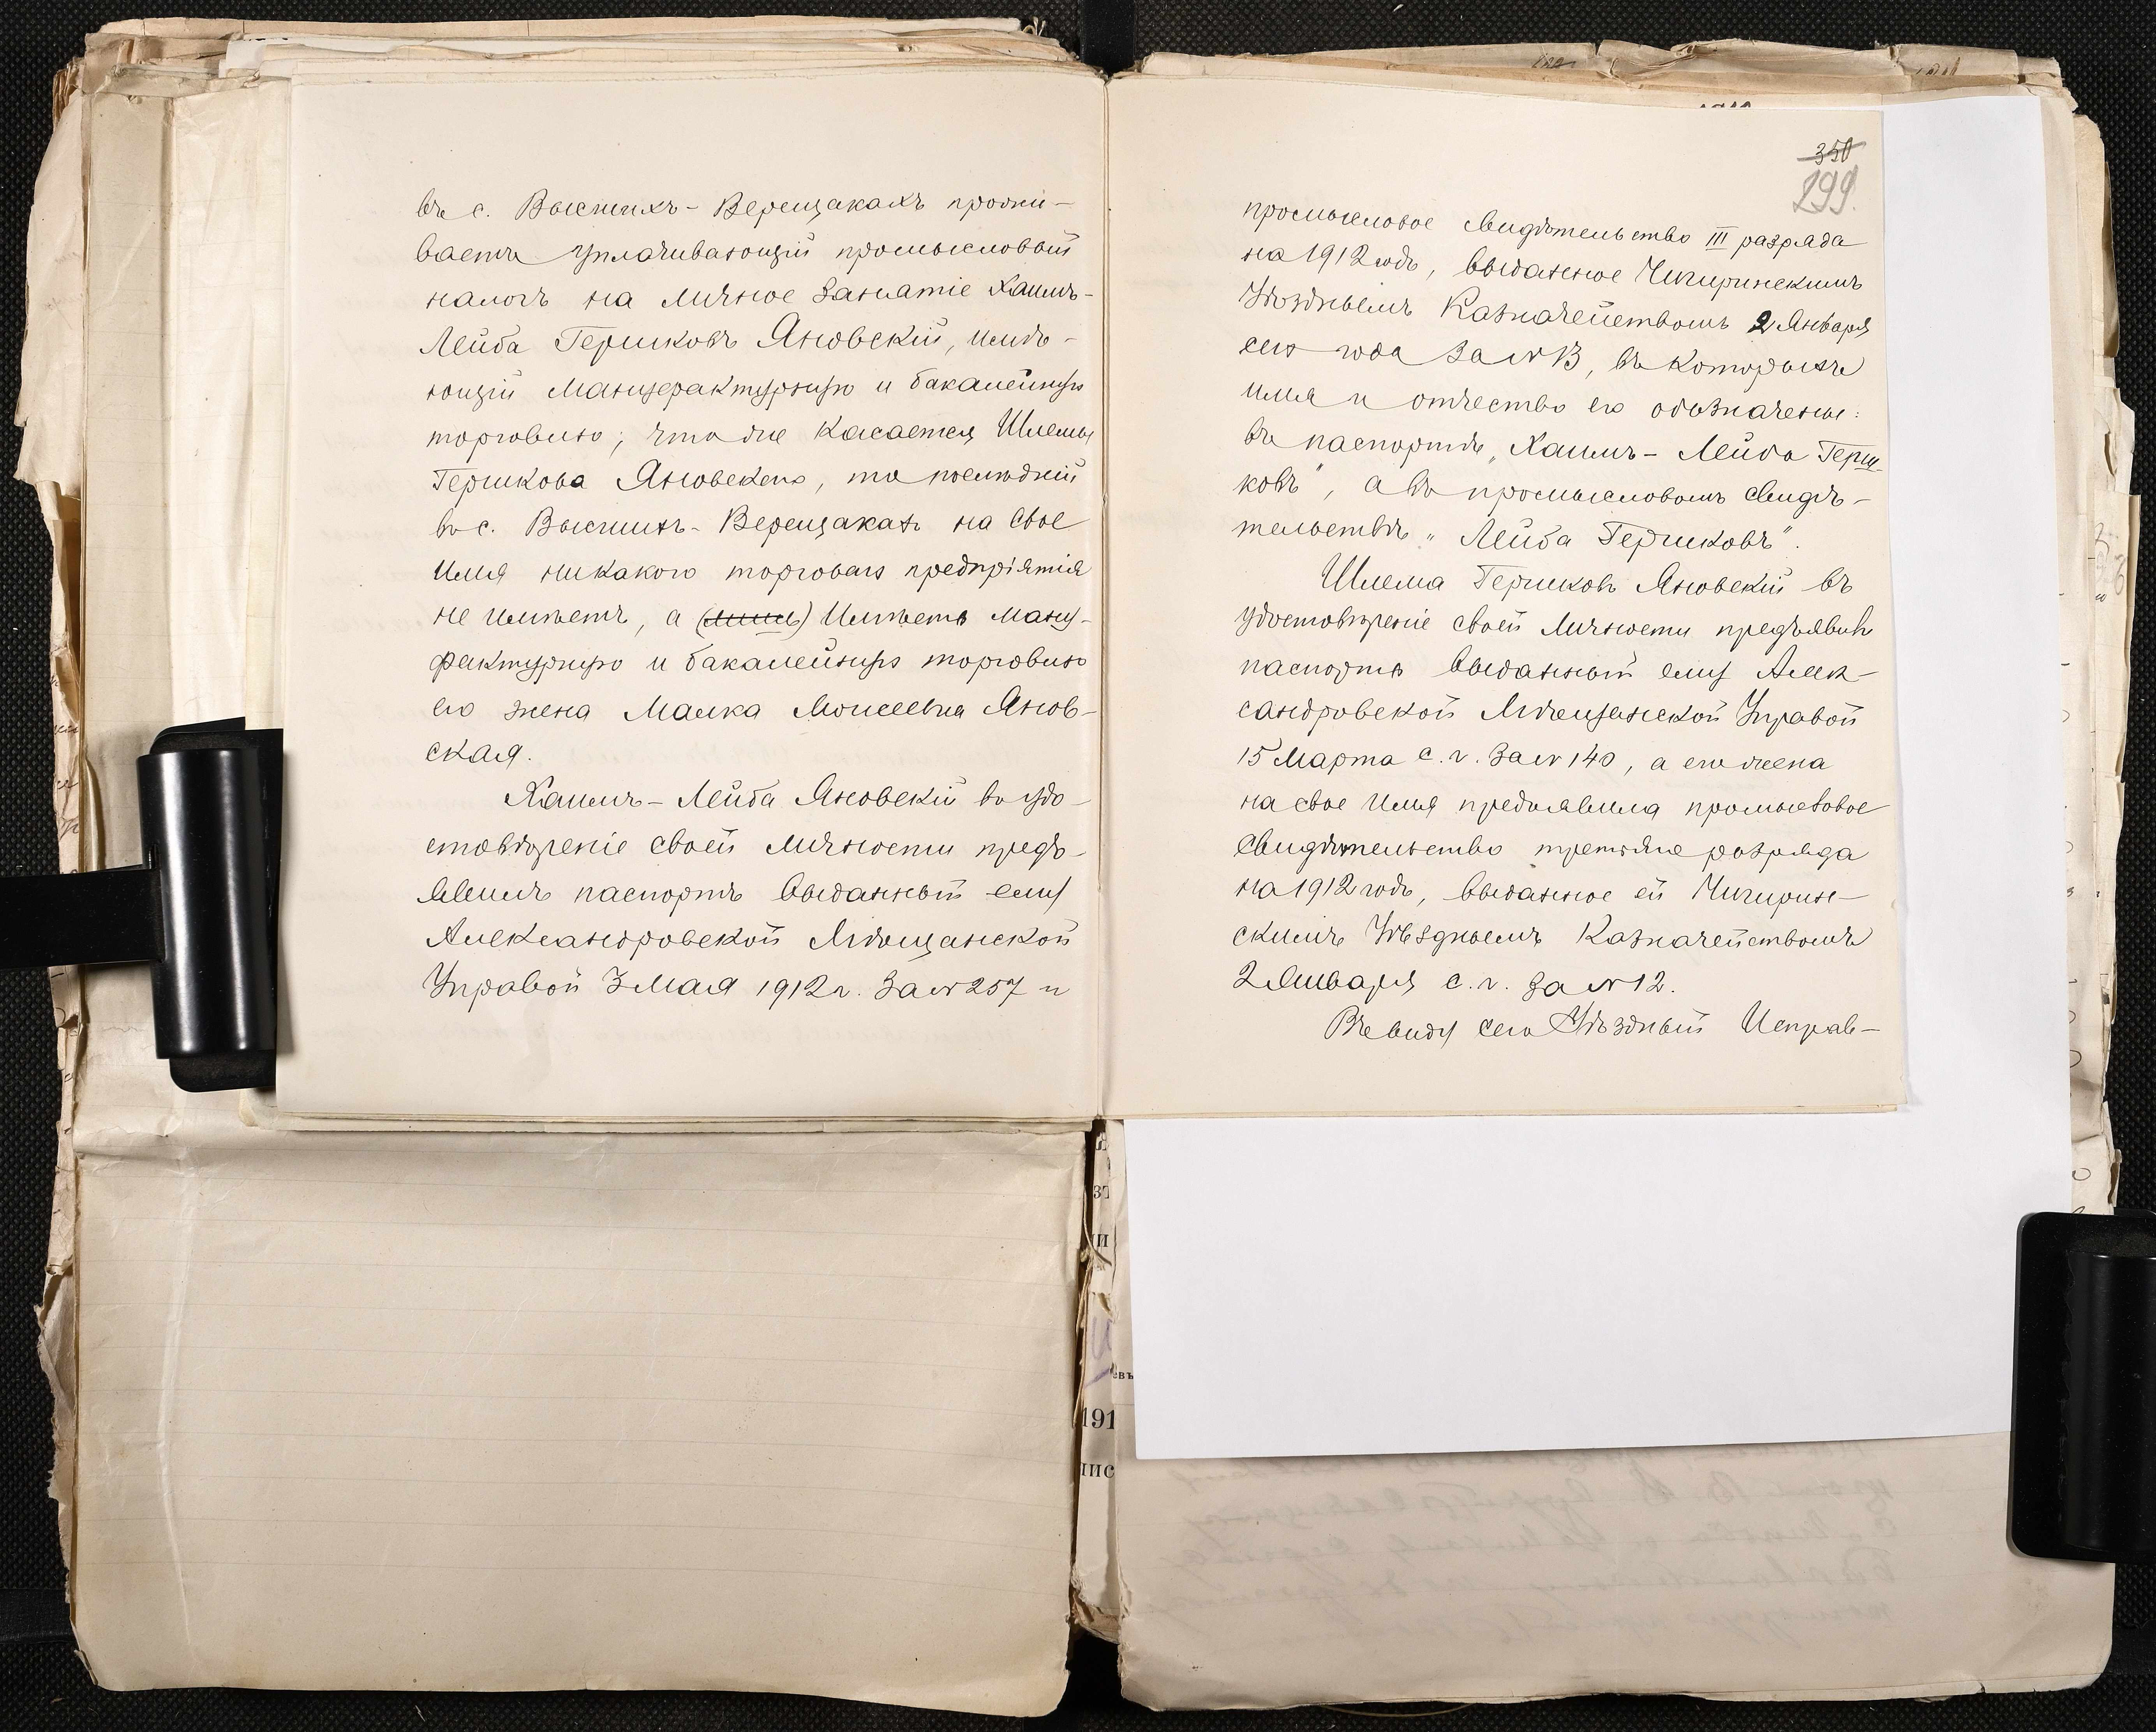 въ с. Высшихъ-Верещакахъ прожи-
ваетъ уплачивающій промысловый
налогъ на личное занятіе Хаимъ-
Лейба Гершковъ Яновскій, имѣ-
ющій мануфактурную и бакалейную
торговлю; что же касается Шлемы
Гершкова Яновскаго, то послѣдній
въ с. Высшихъ-Верещакахъ на свое
имя никакого торговаго предпріятія
не имѣетъ, а имѣетъ ману-
фактурную и бакалейную торговлю
его жена Малка Моисеевна Янов-
ская.
Хаимъ-Лейба Яновскій въ удо-
стовѣреніе своей личности предъ-
явилъ паспортъ выданный ему
Александровской Мѣщанской
Управой 3 Мая 1912 г. за № 257 и
350
299.
промысловое свидѣтельство III разряда
на 1912 годъ, выданное Чигиринскимъ
Уѣзднымъ Казначействомъ 2 Января
сего года за № 13, въ которыхъ
имя и отчество его обозначены:
въ паспортѣ „Хаимъ-Лейба Герш-
ковъ", а въ промысловомъ свидѣ-
тельствѣ „Лейба Гершковъ".
Шлема Гершковъ Яновскій въ
удостовѣреніе своей личности предъявилъ
паспортъ выданный ему Алек-
сандровской Мѣщанской Управой
15 Марта с. г. за № 140, а его жена
на свое имя предъявила промысловое
свидѣтельство третьяго разряда
на 1912 годъ, выданное ей Чигирин-
скимъ Уѣзднымъ Казначействомъ
2 Января с. г. за № 12.
Въ виду сего Уѣздный Исправ-
191